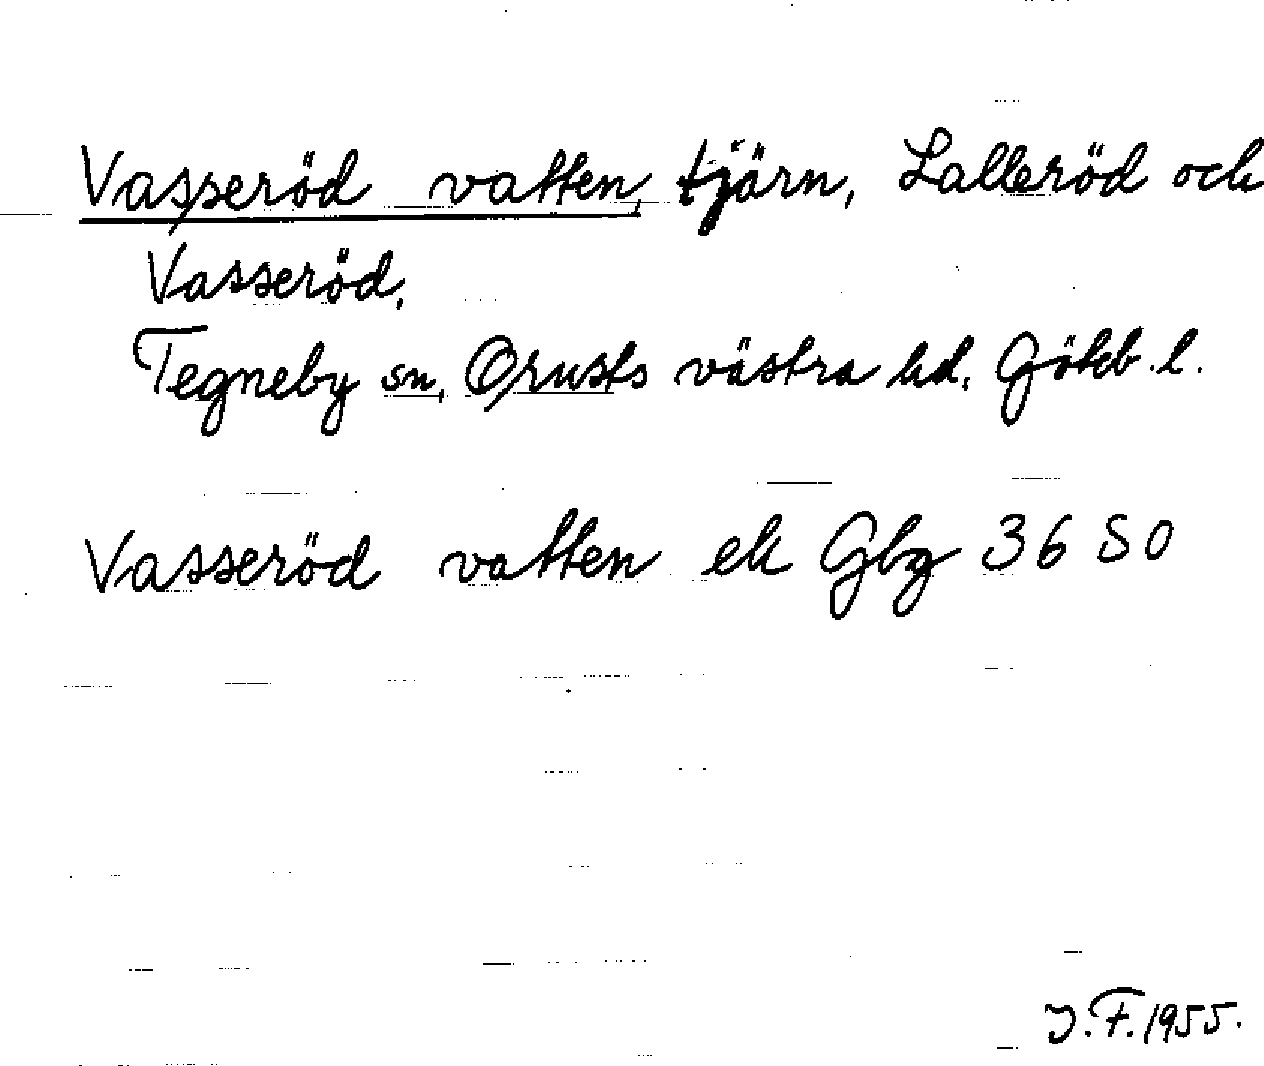 Vasseröd vatten, tjärn, Lalleröd och
Vasseröd,
Tegneby sn, Orusts västra hd, Göteb. l.
Vasseröd vatten ek Gbg 36 SO
J. F. 1955.